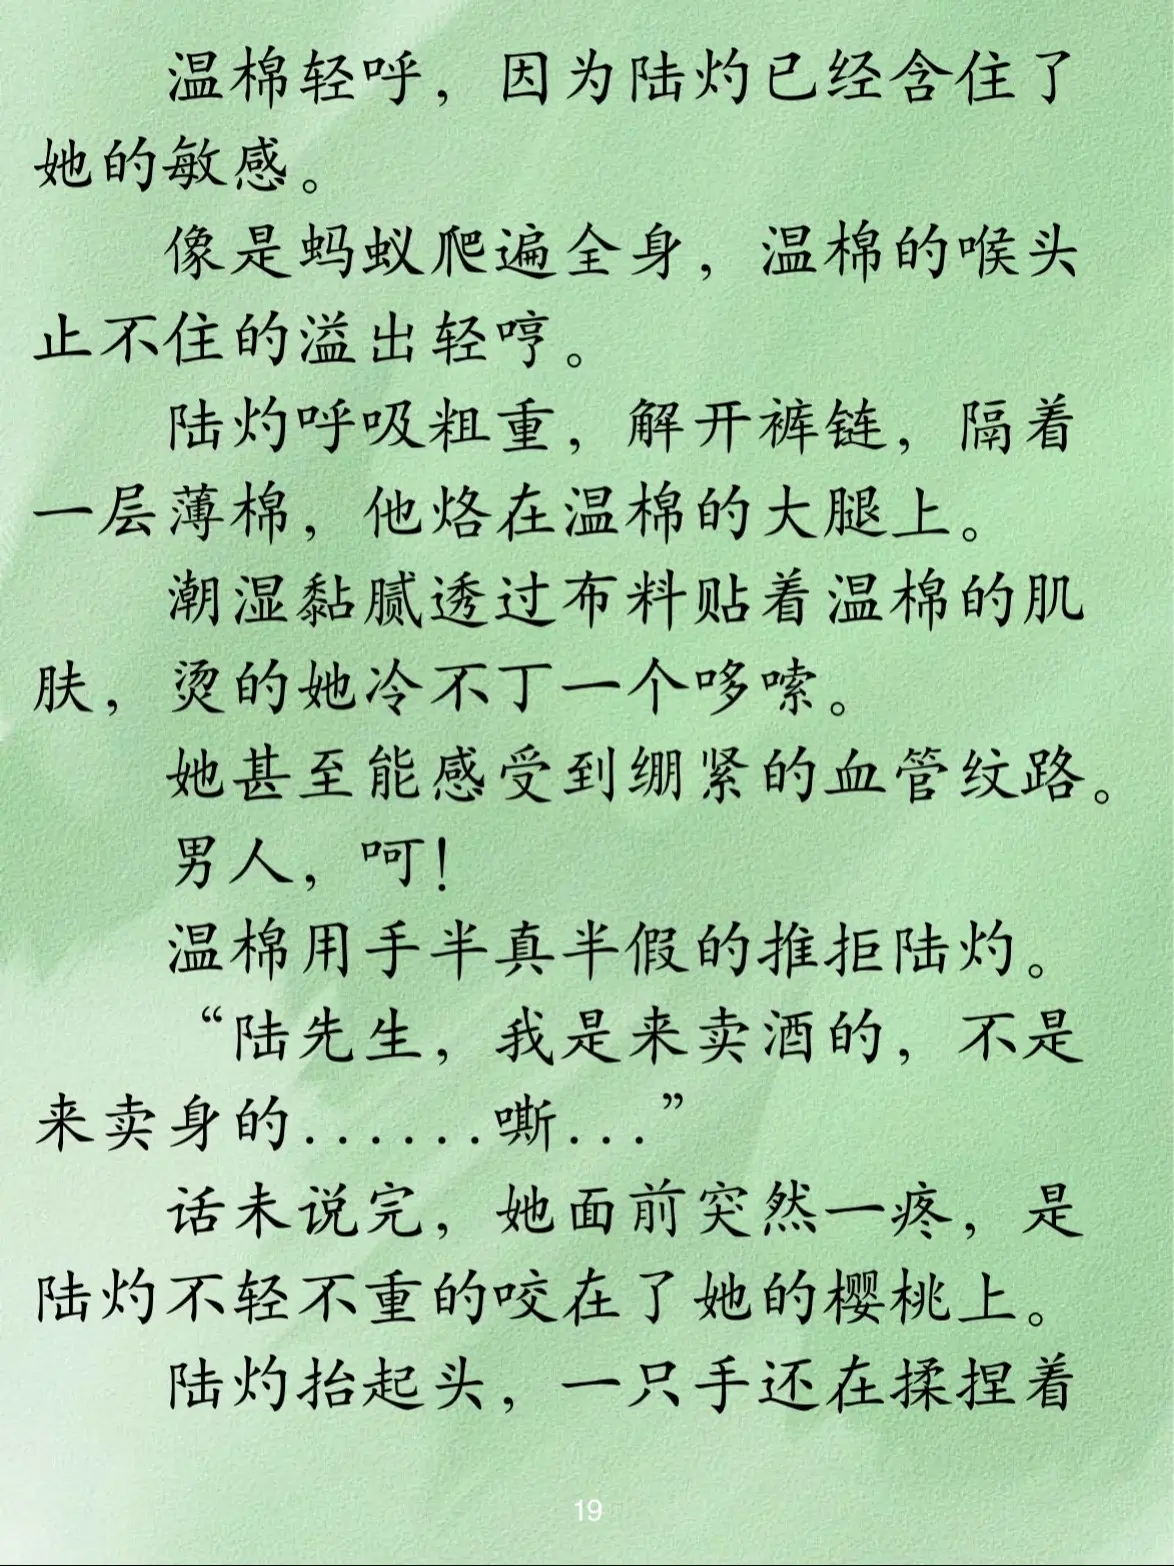 温棉轻呼，因为陆灼已经含住了
她的敏感。
像是蚂蚁爬遍全身，温棉的喉头
止不住的溢出轻哼。
陆灼呼吸粗重，解开裤链，隔着
一层薄棉，他烙在温棉的大腿上。
潮湿黏腻透过布料贴着温棉的肌
肤，烫的她冷不丁一个哆嗦。
她甚至能感受到绷紧的血管纹路。
男人，呵！
温棉用手半真半假的推拒陆灼。
“陆先生，我是来卖酒的，不是
来卖身的......嘶...”
话未说完，她面前突然一疼，是
陆灼不轻不重的咬在了她的樱桃上。
陆灼抬起头，一只手还在揉捏着
19